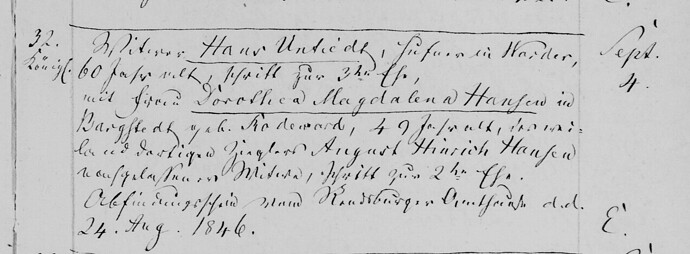 32. Witwer Hans Untiedt, Hufner in Warder, Sept.
Königl. 60 Jahr alt, schritt zur 3ten Ehe, 4.
mit Frau Dorothea Magdalena Hansen in
Bargstedt geb. Radeword, 49 Jahr alt, des wei-
land dortigen Zieglers August Hinrich Hansen
nachgelassener Witwe, schritt zur 2ten Ehe.
Abfindungsschein vom Rendsburger Amthause d.d.
24. Aug. 1846. E.